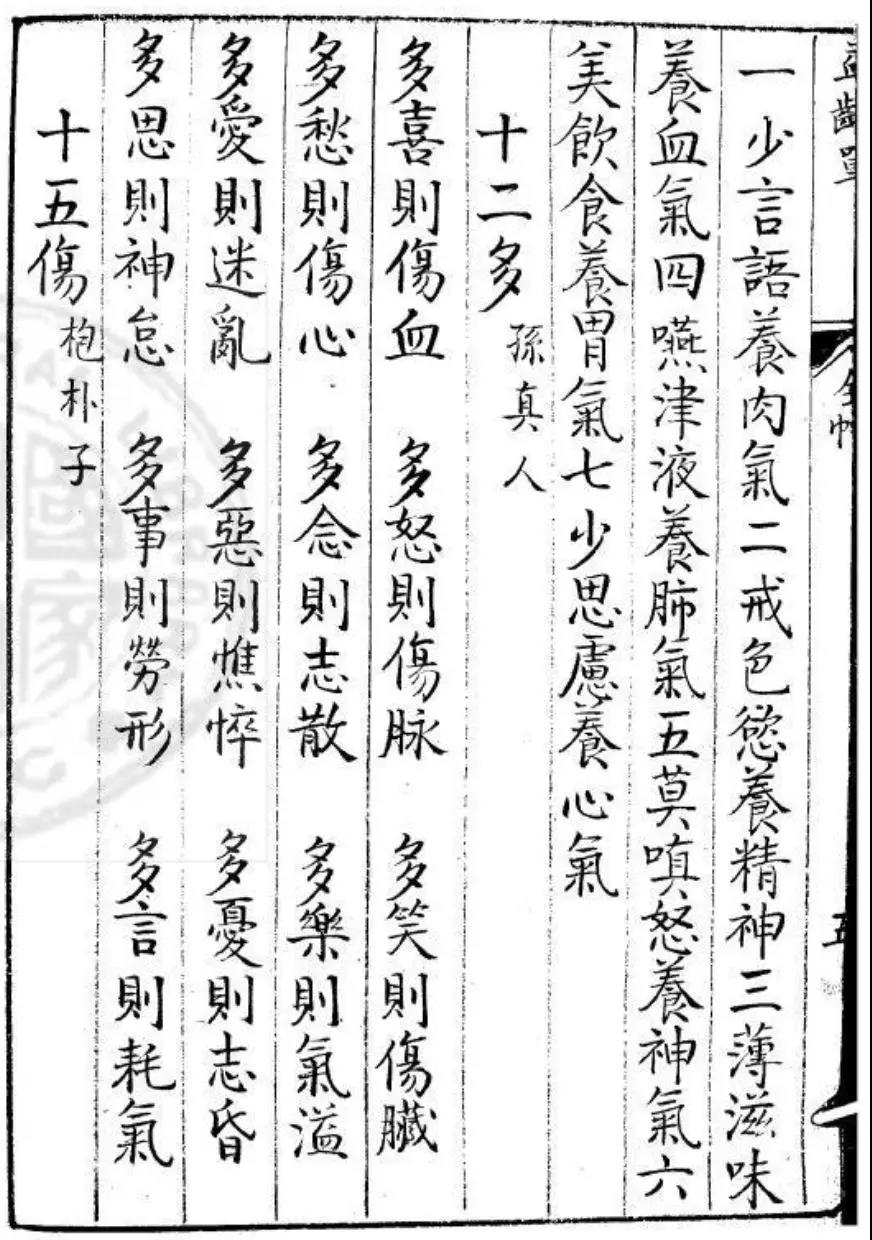 益齡單
一少言語養肉氣二戒色慾養精神三薄滋味
養血氣四嚥津液養肺氣五莫嗔怒養神氣六
美飲食養胃氣七少思慮養心氣
十二多 孫真人
多喜則傷血 多怒則傷脉 多笑則傷臟
多愁則傷心 多念則志散 多樂則氣溢
多愛則迷亂 多惡則憔悴 多憂則志昏
多思則神怠 多事則勞形 多言則耗氣
十五傷 枹朴子